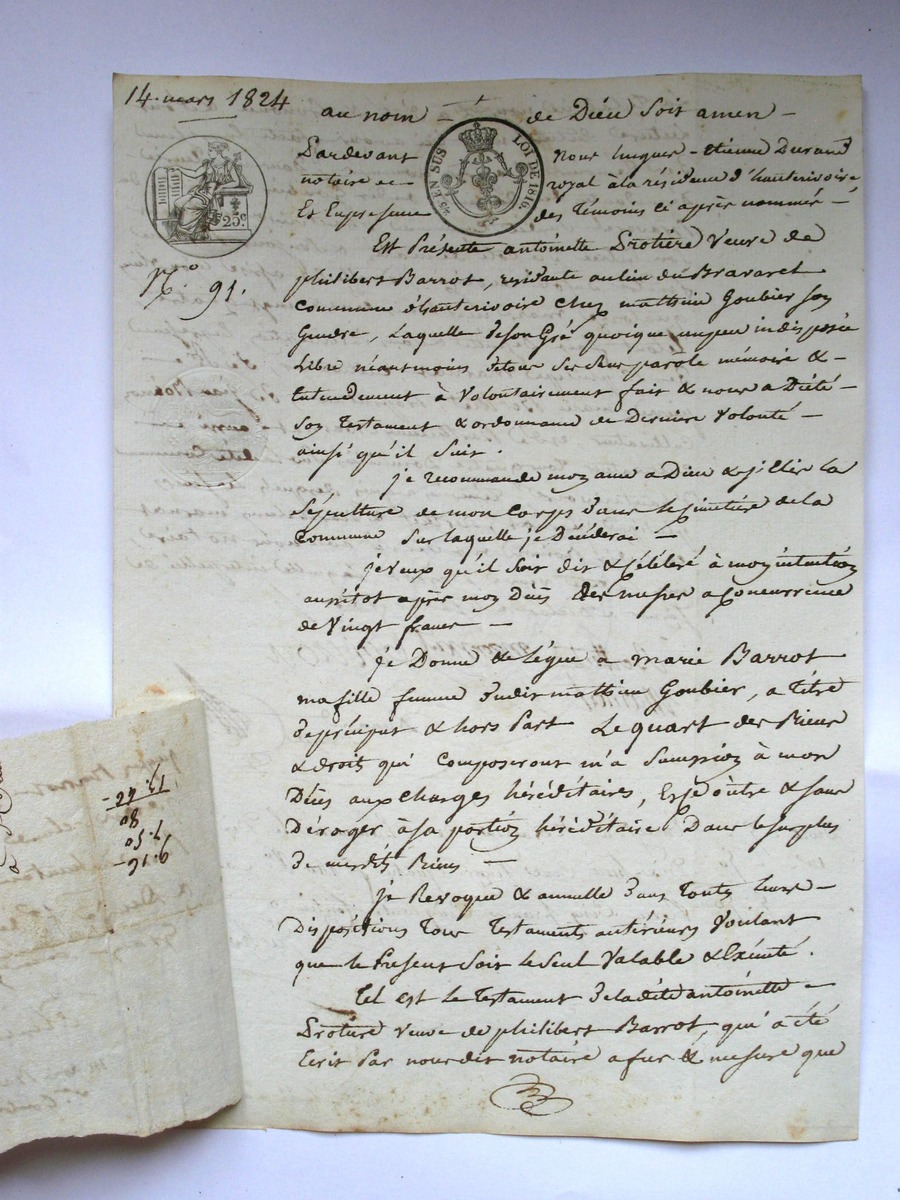 14. mars 1824
au nom de Dieu soit amen
EN SUS LOI DE 1816.
Pardevant Nous hugues - etienne Durand
notaire royal à la résidence d'hauterivoire
Et En présence des témoins ci après nommés
25c.
N.º 91.
Est Présente antoinette Protière Veuve de
philibert Barrot, residante au lieu du Bravaret
commune d'hauterivoire chez mathieu Goubier son
Gendre, Laquelle de son Gré quoique un peu indisposée
Libre néantmoins de tous ses sens parole mémoire &
Entendement à Volontairement fait & nous a Dicté
Son Testament & ordonnance de Derniere Volonté
ainsi qu'il suit.
je recommande mon ame a Dieu & j'Elis la
Sépulture de mon Corps dans le cimetière de la
Commune sur laquelle je Décéderai
je veux qu'il soit dit & Célébré à mon intention
aussitot après mon Décès des messes a Concurrence
de Vingt francs
je Donne & Légue a marie Barrot
ma fille femme dudit mathieu Goubier, a titre
de préciput & hors Part Le quart des Biens
& droits qui Composeront ma Succession à mon
Décès aux Charges héréditaires, Et ce outre & sans
Déroger à sa portion héréditaire Dans le surplus
de mesdits Biens
je Revoque & annulle dans toutes leurs
Dispositions Tous Testaments antérieurs Voulant
que le Present soit le seul Valable & Exécuté.
Tel est le Testament de ladite antoinette
Protière Veuve de philibert Barrot, qui a été
Ecrit Par nous dit notaire a fur & mesure que
13.46
80
7.50
9.16